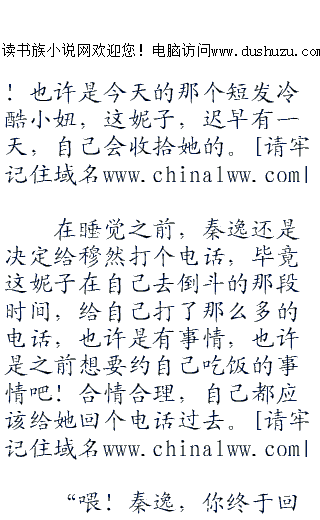 读书族小说网欢迎您！电脑访问www.dushuzu.com
！也许是今天的那个短发冷
酷小妞，这妮子，迟早有一
天，自己会收拾她的。[请牢
记住域名www.china1ww.com|
在睡觉之前，秦逸还是
决定给穆然打个电话，毕竟
这妮子在自己去倒斗的那段
时间，给自己打了那么多的
电话，也许是有事情，也许
是之前想要约自己吃饭的事
情吧！合情合理，自己都应
该给她回个电话过去。[请牢
记住域名www.china1ww.com|
“喂！秦逸，你终于回